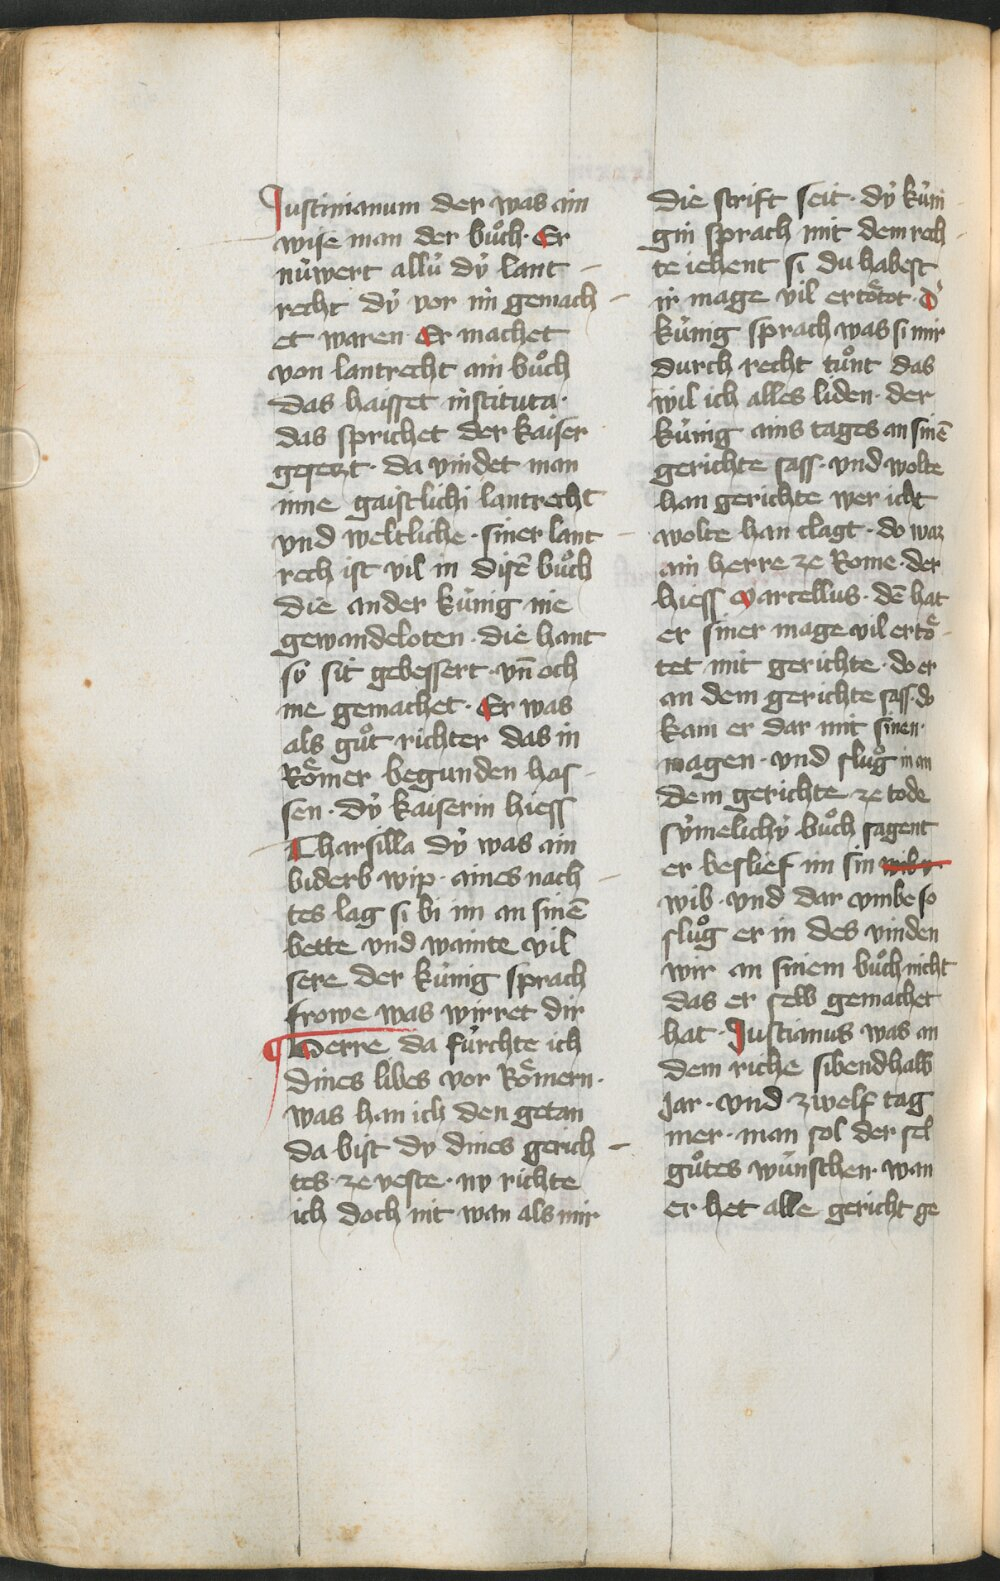 Justinianum der was ain
wise man der buͦch. Er
nuͥwert alluͥ dyͥ lant
recht dyͥ vor im gemach
et waren. Er machet
von lantrecht ain buͦch
das haisset instituta.
das sprichet der kaiser
gesetzt. da vindet man
inne gaistlichi lantrecht
vnd weltliche. siner lant
rech ist vil in disē buͦch
die ander kuͥnig nie
gewandeloten. die hant
so sit gebessert. vn̄ och
me gemachet. Er was
als guͦt richter das in
Roͤmer begunden has
sen. dyͥ kaiserin hiess
Tharsilla dyͥ was ain
biderb wip. aines nach
tes lag si bi im an sinē
bette vnd wainte vil
sere der kuͥnig sprach
frowe was wirret dir
¶ Herre da fuͥrchte ich
dines libes vor Roͤmern.
was han ich den getan
da bist dv dines gerich
tes ze veste. nv richte
ich doch nit wan als mir
die scrift seit. dyͥ kuͥni
gin sprach mit dem rech
te iehent si du habest
ir mage vil ertoͤtot. d'
kuͥnig sprach was si mir
durch recht tuͦnt das
wil ich alles liden. der
kuͥnig ains tages an sinē
gerichte sass. vnd wolte
han gerichte wer icht
wolte han clagt. do waz
ain herre ze Rome. der
hiess Marcellus. dē hat
er siner mage vil ertoͤ
tet mit gerichte. do er
an dem gerichte sass. do
kam er dar mit sinen.
magen. vnd sluͦg in an
dem gerichte ze tode
syͥmelichyͥ buͦch sagent
er beslief im sin wib v
wib. vnd dar vmbe so
sluͦg er in des vinden
wir an sinem buͦch nicht
das er selb gemachet
hat. Justianus was an
dem riche sibendhalb
jar. vnd zwelf tag
mer. man sol der sel
guͦtes wuͥnschen. wan
er het alle gericht ge